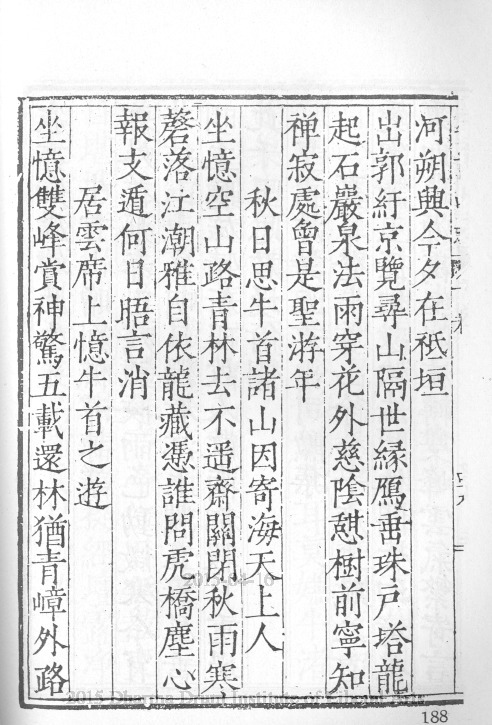 河朔興今夕在祗垣
出郭紆京覽尋山隔世緣鴈畫珠戸塔龍
起石巖泉法雨穿花外慈陰憇樹前寧知
禅寂處曾是聖游年
秋日思牛首諸山因寄海天上人
坐憶空山路青林去不遥齋關閉秋雨寒
磬落江潮雅自依龍藏憑誰問虎橋塵心
報支遁何日晤言消
居雲席上憶牛首之遊
坐憶雙峰賞神驚五載還林猶青嶂外路
188